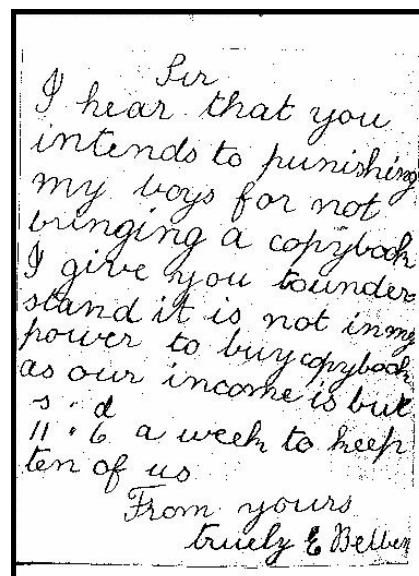 Sir
I hear that you
intends to punishing
my boys for not
bringing a copybook
I give you tounder
stand it is not in my
power to buy copybook
as our income is but
s. d
11. 6 a week to keep
ten of us
From yours
truely E Bellen